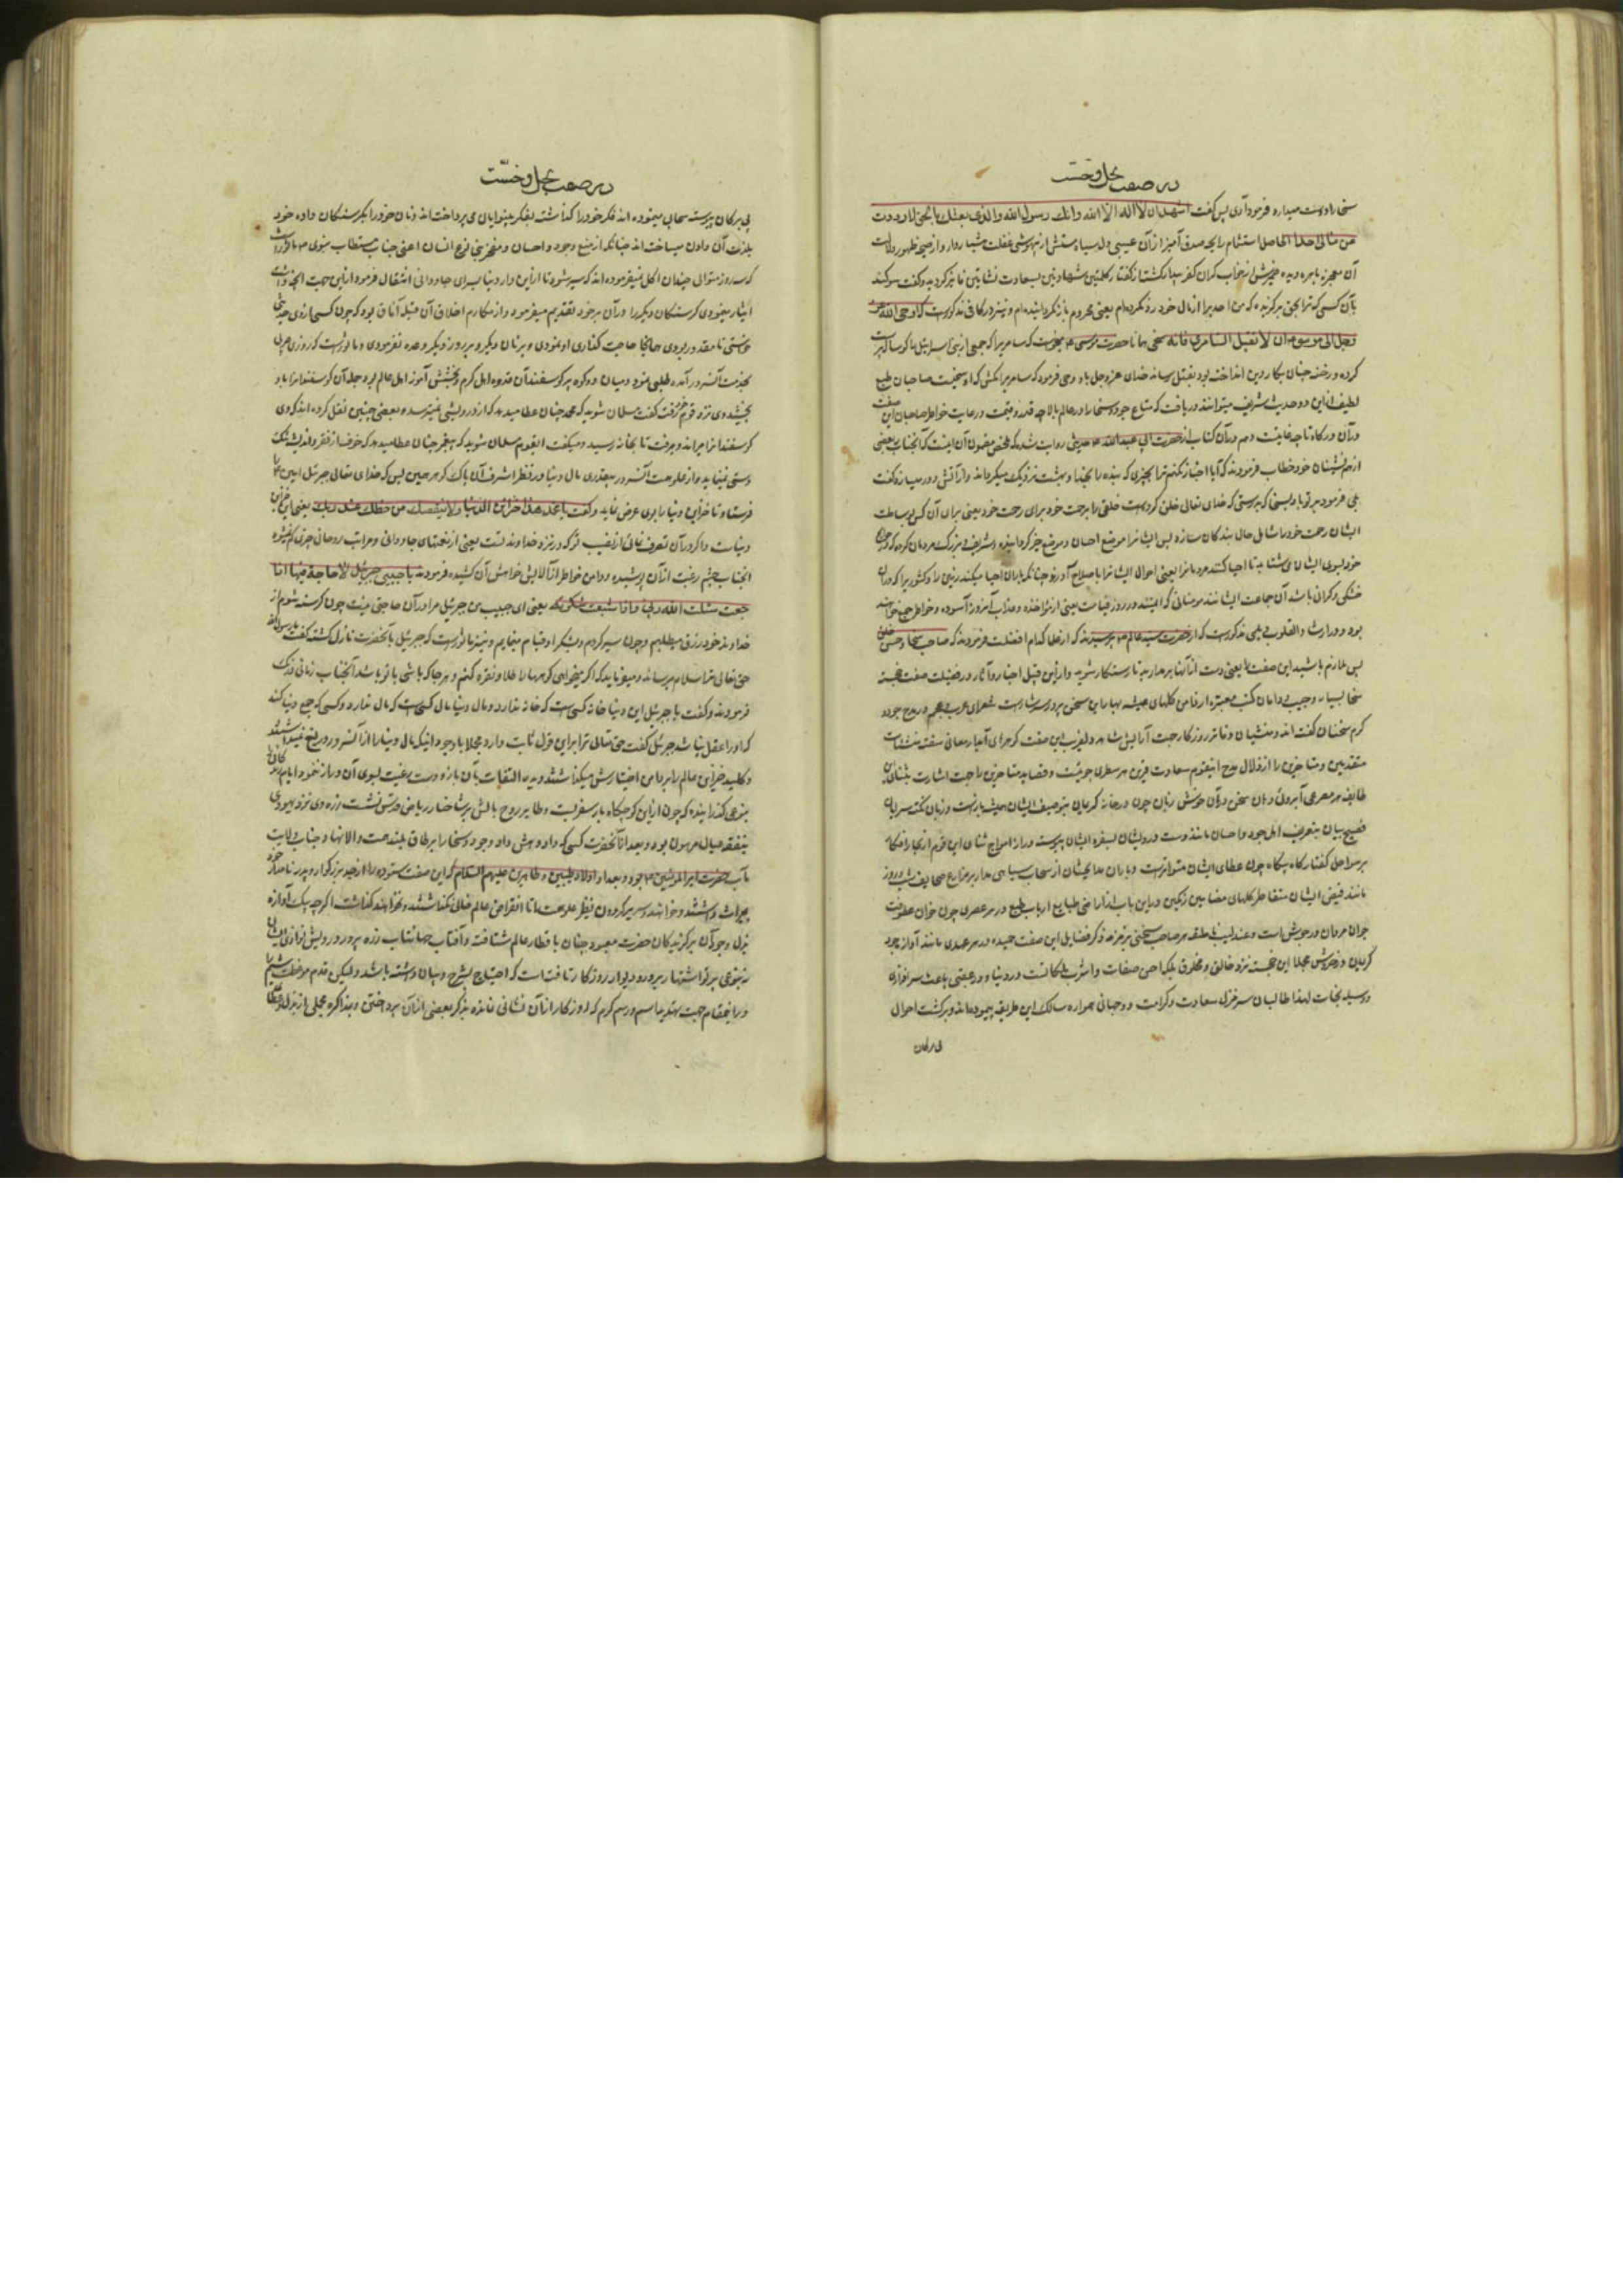 در صفت بخل و خست
سخا را دوست میدارد فرمود آری پس گفت اشهد ان لا اله الا الله وانک رسول الله والذی بعثک بالحق لا رددت
من مالی احدا الحاصل استشمام رایحه صدق آمیز از آن
آن معجزه باهره دیده خویش از خواب گران کفر بیدار گشت از گفتار کلمتین شهادتین بسعادت نشاتین فایز گردید و گفت سوگند
بآن کسی که ترا بحق برگزیده که من احدیرا از مال خود رد نکرده‌ام یعنی محروم باز نگردانیده‌ام و نیز در کافی مذکورست که اوحی الله عز
وجل الی موسی ان لا تقتل السامری فانه سخی همانا حضرت موسی میخواست که سامریرا که جمعی از بنی اسرائیل را گوساله پرست
کرده و رخنه چنان بکار دین انداخته بود بقتل رساند خدای عز وجل باو وحی فرمود که سامریرا مکش که او سخیست صاحبان طبع
لطیف از این دو حدیث شریف میتوانند دریافت که متاع جود و سخا را در عالم بالا چه قدر و قیمت و رعایت خواطر صاحبان این صفت
در آن درگاه تا چه غایتست و هم در آن کتاب از حضرت ابی عبد الله حدیثی روایت شده که ملخص مضمون آن اینست که آنجناب ببعضی
از همنشینان خود خطاب فرمودند که آیا اخبار نکنم ترا بچیزی که بنده را بخدا و بهشت نزدیک میگرداند و از آتش دور میسازد گفت
بلی فرمود بر تو باد بسخا که بدرستی که خدای تعالی خلق کرده است خلقی را برحمت خود برای رحمت خود یعنی برای آن که بوساطت
ایشان رحمت خود را شامل حال بندگان سازد پس ایشانرا موضع احسان و موضع خیر گردانیده
خود بسوی ایشان می‌شتابند تا احیا کنند مردمانرا یعنی احوال ایشانرا باصلاح آورند چنانکه باران احیا میکند زمین را
خشکی و گرانی باشد آن جماعت ایشانند مومنانی که ایمنند در روز قیامت یعنی از مواخذه و عذاب آنروز آسوده و خواطر جمع خواهند
بود و در ارشاد القلوب دیلمی مذکورست که از حضرت سید عالم پرسیدند که از عملها کدام افضلست فرمودند که صاحب سخا و حسن خلق
پس ملازم باشید این صفت را یعنی دست از آنها برمدارید تا رستگار شوید و از این قبیل اخبار و آثار در فضیلت صفت خجسته
سخا بسیار و جیب و دامان کتب معتبره از فواید گلهای همیشه بهار این سخن پر و سرشارست شعرای عرب و عجم در مدح جود و
کرم سخنان گفته‌اند و منشیان دفاتر روزگار جهت آرایش شاهد دلفریب این صفت گوهرهای آبدار معانی سفته
متقدمین و متاخرین را از زلال مدح اینقوم سعادت قرین هر سطری جوئیست و قصاید متاخرین را جهت اشارت بثنای این
طایفه هر مصرعی ابروئی و دهان سخن دران خوش زبان چون در خانه کریمان بتوصیف ایشان همیشه بازست
فصیح بیان بتعریف اهل جود و احسان مانند دست درویشان بسفره ایشان پیوسته دراز امواج ثنای این قوم
بر سواحل گفتار گاه بیگاه چون عطای ایشان متواترست و باران مدایحشان از سحاب سیاهی مداد بر مزارع صحایف شب و روز
مانند فیض ایشان متقاطر گلهای مضامین رنگین در این باب از اراضی طبایع ارباب طبع در هر عصری چون خوان
جوانمردان در جوش است و عندلیب ناطقه هر صاحب سخنی بزمزمه ذکر فضایل این صفت حمیده در هر عهدی مانند آوازه جود
کریمان در خروش مجملا این خجسته نزد خالق و مخلوق ملیک احسن صفات و اشرف ملکاتست و در دنیا و در عقبی باعث سرافرازی
و وسیله نجات لهذا طالبان سرمنزل سعادت و کرامت دو جهانی همواره سالک این طریقه پیموده‌اند و بر کشت احوال
بی برگان
در صفت بخل و خست
بی برگان پیوسته سحابی مینموده‌اند فکر خود را گذاشته بفکر بینوایان می‌پرداخته‌اند و نان خود را بگرسنگان داده خود
بلذت آن دادن میساخته‌اند چنانکه از منبع جود و احسان و مفخر بنی نوع انسان اعنی جناب مستطاب نبوی ماثورست
که سه روز متوالی چندان اکل نمیفرموده‌اند که سیر شود تا از این دار دنیا بسرای جاودانی انتقال فرمود از این جهت آنچه داشت
ایثار مینمودی گرسنگان دیگر را در آن بر خود تقدیم میفرمود و از مکارم اخلاق آن قبله آفاق بود که چون کسی از وی چیزی
خواستی تا مقدور بودی همانجا حاجت گذاری او نمودی و بزمان دیگر و بروز دیگر وعده نفرمودی و ماثورست که روزی عربی
بخدمت آنسرور آمده طلبی نمود و میان دو کوه پر گوسفند آن قدوه اهل کرم و بخشش آموز اهل عالم بود و جمله آن گوسفندانرا باو
بخشید و وی نزد قوم خود رفت گفت مسلمان شوید که محمد چنان عطا میدهد که از درویشی نمیترسد و بعضی چنین نقل کرده‌اند که وی
گوسفندانرا میراند و میرفت تا بخانه رسید و میگفت ایقوم مسلمان شوید که پیغمبر چنان عطا میدهد که خوف از فقر
دستی نمینماید و از علو همت آنسرور بیقدری مال دنیا در نظر اشرف آن پاک گوهر همین بس که خدای تعالی جبرئیل امین را
فرستاد تا خزاین دنیا را بروی عرض نماید و گفت یا محمد هذه خزائن الدنیا ولا ینقصک من حظک عند ربک یعنی این خزاین
دنیاست و اگر در آن تصرف نمائی از نصیب تو که در نزد خداوند تست یعنی از نعمتهای جاودانی و مراتب روحانی چیزی کم نمیشود
آنجناب چشم رغبت از آن پوشیده و دامن خواطر از آلایش خواهش آن کشیده فرمودند یا حبیبی جبرئیل لا حاجة فیها اذا
جعت سئلت الله ربی واذا شبعت شکرته یعنی ای حبیب من جبرئیل مرا در آن حاجتی نیست چون گرسنه شوم از
خداوند خود رزق میطلبم و چون سیر گردم بشکر او قیام مینمایم و نیز ماثورست که جبرئیل بآنحضرت نازل گشته گفت یا رسول الله
حق تعالی ترا سلام میرساند و میفرماید که اگر میخواهی کوهها را طلا و نقره کنم و هر جا که باشی با تو باشد آنجناب زمانی درنگ
فرمودند و گفت یا جبرئیل این دنیا خانه کسی است که خانه ندارد و مال دنیا مال کسی است که مال ندارد و کسی که جمع دنیا کند
که او را عقل نباشد جبرئیل گفت حق تعالی ترا بر این قول ثابت دارد مجملا با وجود آنکه مال دنیا را از آنسرور دریغ نمیداشتند
و کلید خزاین عالم را بر دامن اختیارش میگذاشتند دیده التفات بآن باز و دست رغبت بسوی آن دراز ننمود
بنوعی گذرانیده که چون از این کوچگاه بار سفر بست و طایر روح بالش بر شاخسار ریاض قدس نشست زره وی نزد یهودی
بنفقه عیال مرهون بود و بعد از آنحضرت کسی که داد دهش داد و جود و سخا را بر طاق بلند همت والا نهاد جناب ولایت
مآب حضرت امیر المومنین بود و بعد او اولاد طیبین و طاهرین علیهم السلام که این صفت ستوده را از جد بزرگوار و پدر نامدار خود
بمیراث داشتند
نزل وجود آن برگزیدگان حضرت معبود چنان باقطار عالم شتافته و آفتاب جهانتاب ذره پرور درویش نوازی ایشان
بنوعی پرتو اشتهار بر در و دیوار روزگار تافته است که احتیاج بشرح و بیان داشته باشد و لیکن
در اینمقام جهت تهذیب اسم و رسم کرم که از روزگار از آن نشانی نمانده بذکر بعضی از آن پرداختن و بمذاکره مجملی از